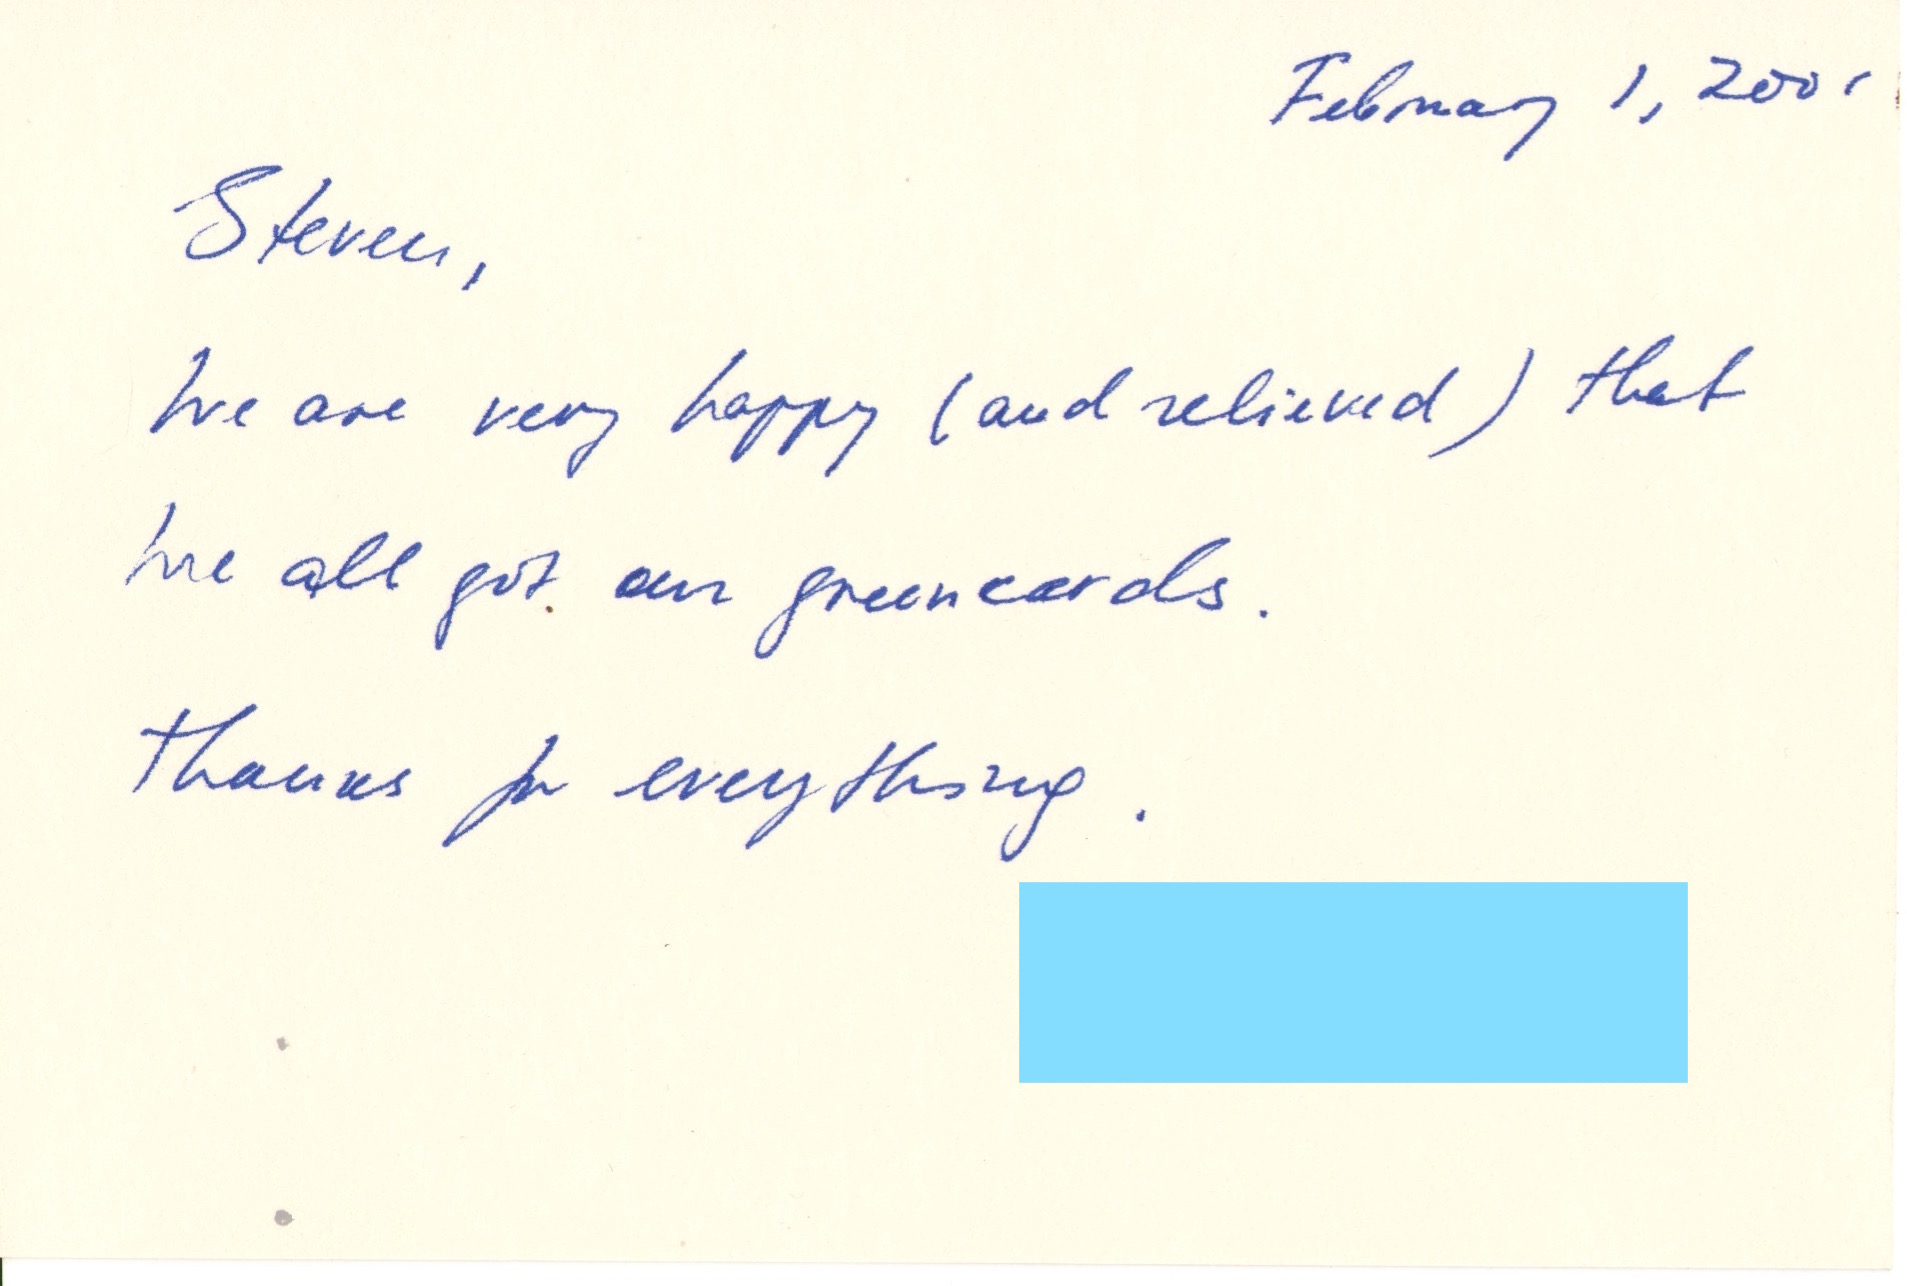 February 1, 2001
Steven,
We are very happy (and relieved) that
we all got our greencards.
Thanks for everything.